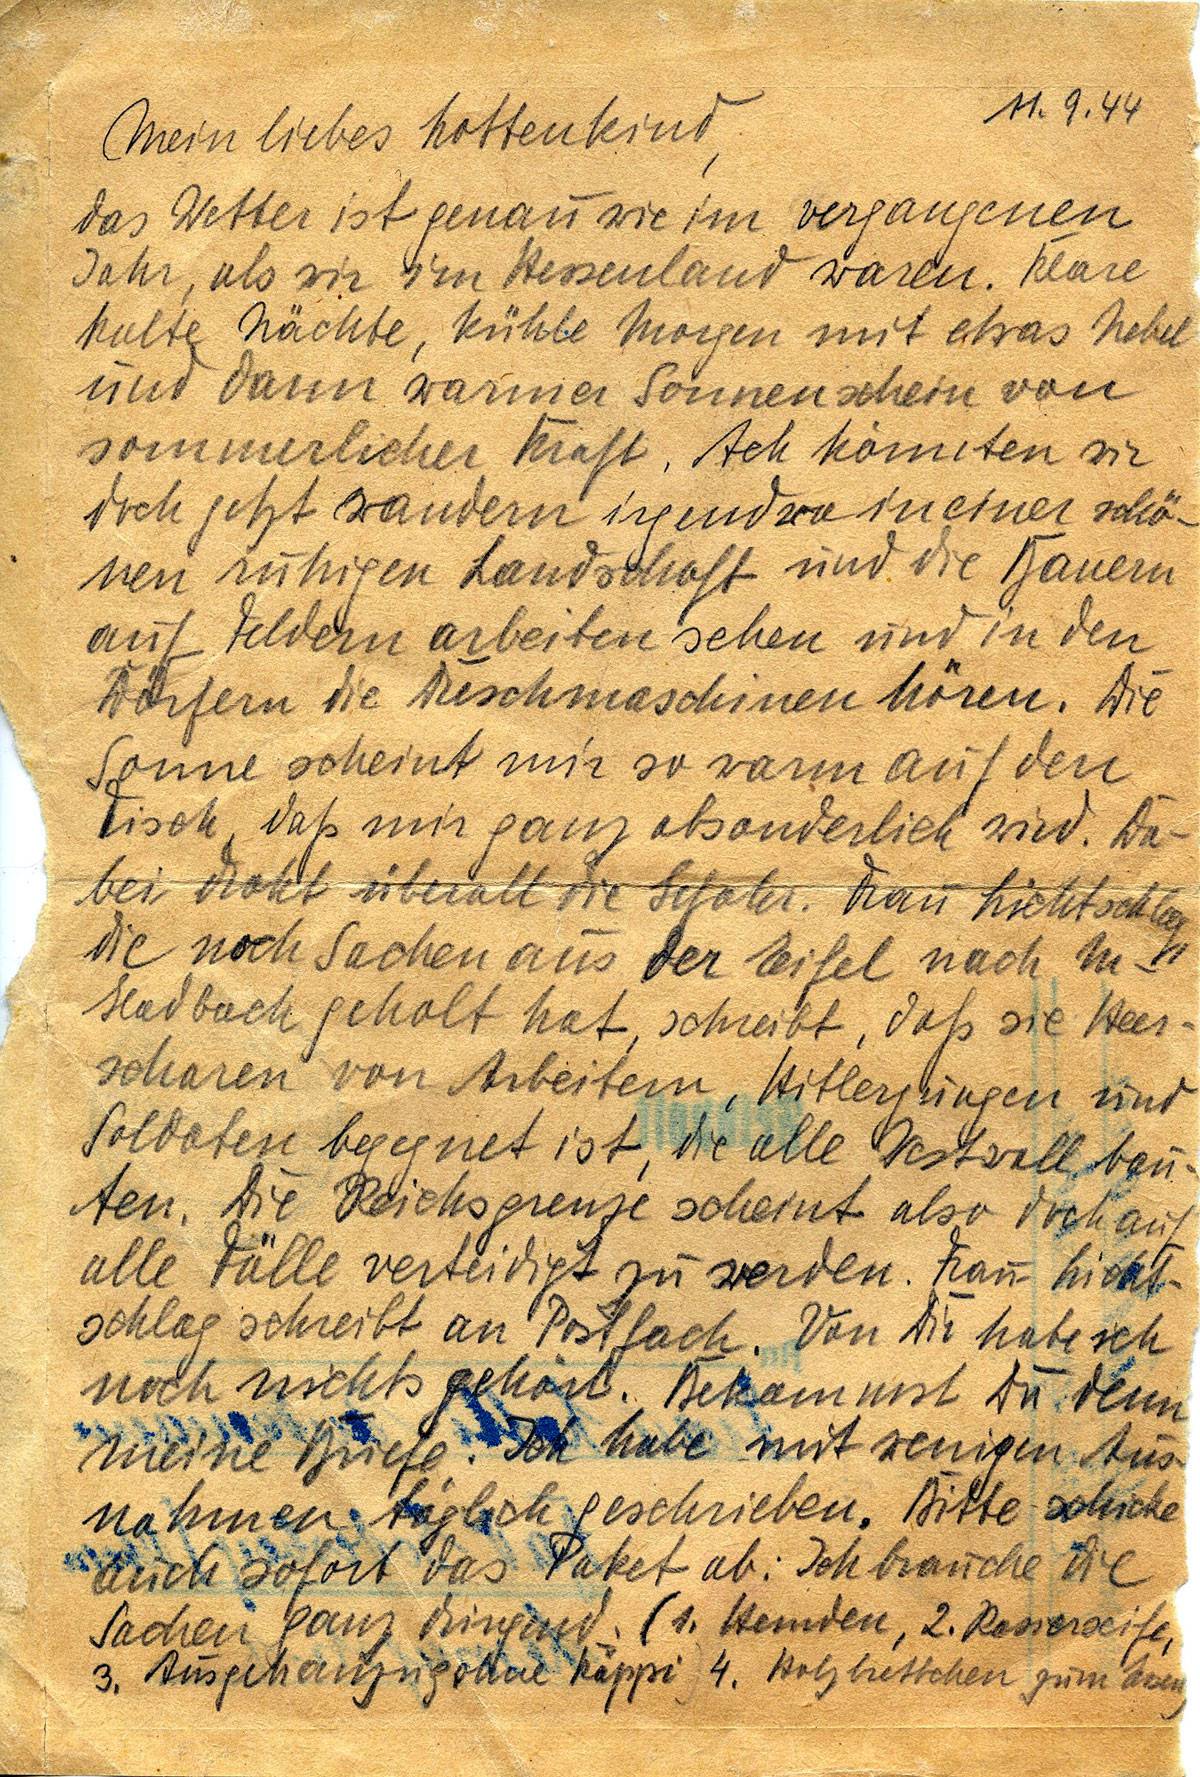 11.9.44
Mein liebes Lottenkind,
das Wetter ist genau wie im vergangenen
Jahr, als wir im Hessenland waren. Klare
kalte Nächte, kühle Morgen mit etwas Nebel
und dann warmer Sonnenschein von
sommerlicher Kraft. Ach könnten wir
doch jetzt wandern irgendwo in einer schö-
nen ruhigen Landschaft und die Bauern
auf Feldern arbeiten sehen und in den
Dörfern die Dreschmaschinen hören. Die
Sonne scheint mir so warm auf den
Tisch, daß mir ganz absonderlich wird. Da-
bei droht überall die Gefahr. Frau Lichtschlag,
die noch Sachen aus der Eifel nach M-
Gladbach geholt hat, schreibt, daß sie Heer-
scharen von Arbeitern, Hitlerjungen und
Soldaten begegnet ist, die alle Westwall bau-
ten. Die Reichsgrenze scheint also doch auf
alle Fälle verteidigt zu werden. Frau Licht-
schlag schreibt an Postfach. Von Dir habe ich
noch nichts gehört. Bekommst Du denn
meine Briefe. Ich habe mit wenigen Aus-
nahmen täglich geschrieben. Bitte schicke
auch sofort das Paket ab: Ich brauche die
Sachen ganz dringend. (1. Hemden, 2. Rasierseife,
3. Ausgehanzug ohne Käppi) 4. Holzbrettchen zum